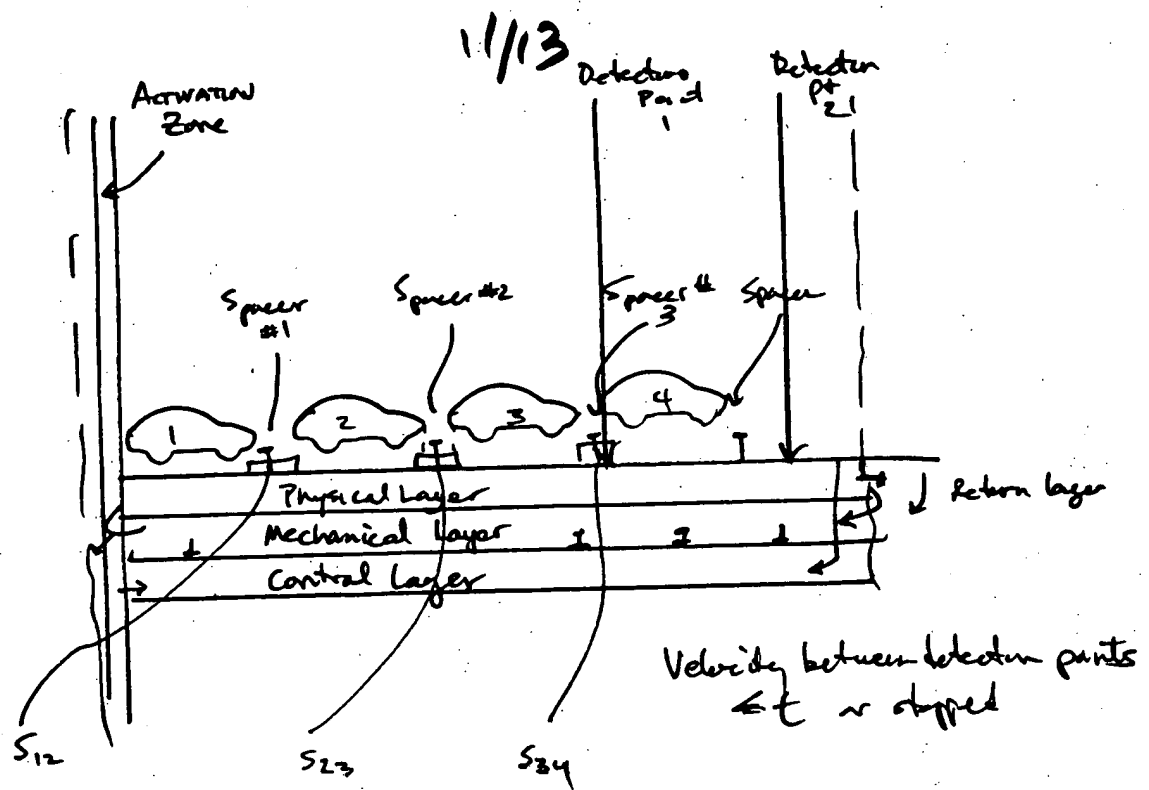 11/13
Activation
Zone
Detection
Point
1
Detection
pt
2
Spacer
#1
Spacer #2
Spacer #
3
Spacer
1
2
3
4
Physical Layer
Mechanical Layer
Control Layer
Return layer
Velocity between detection points
or stopped
S12
S23
S34